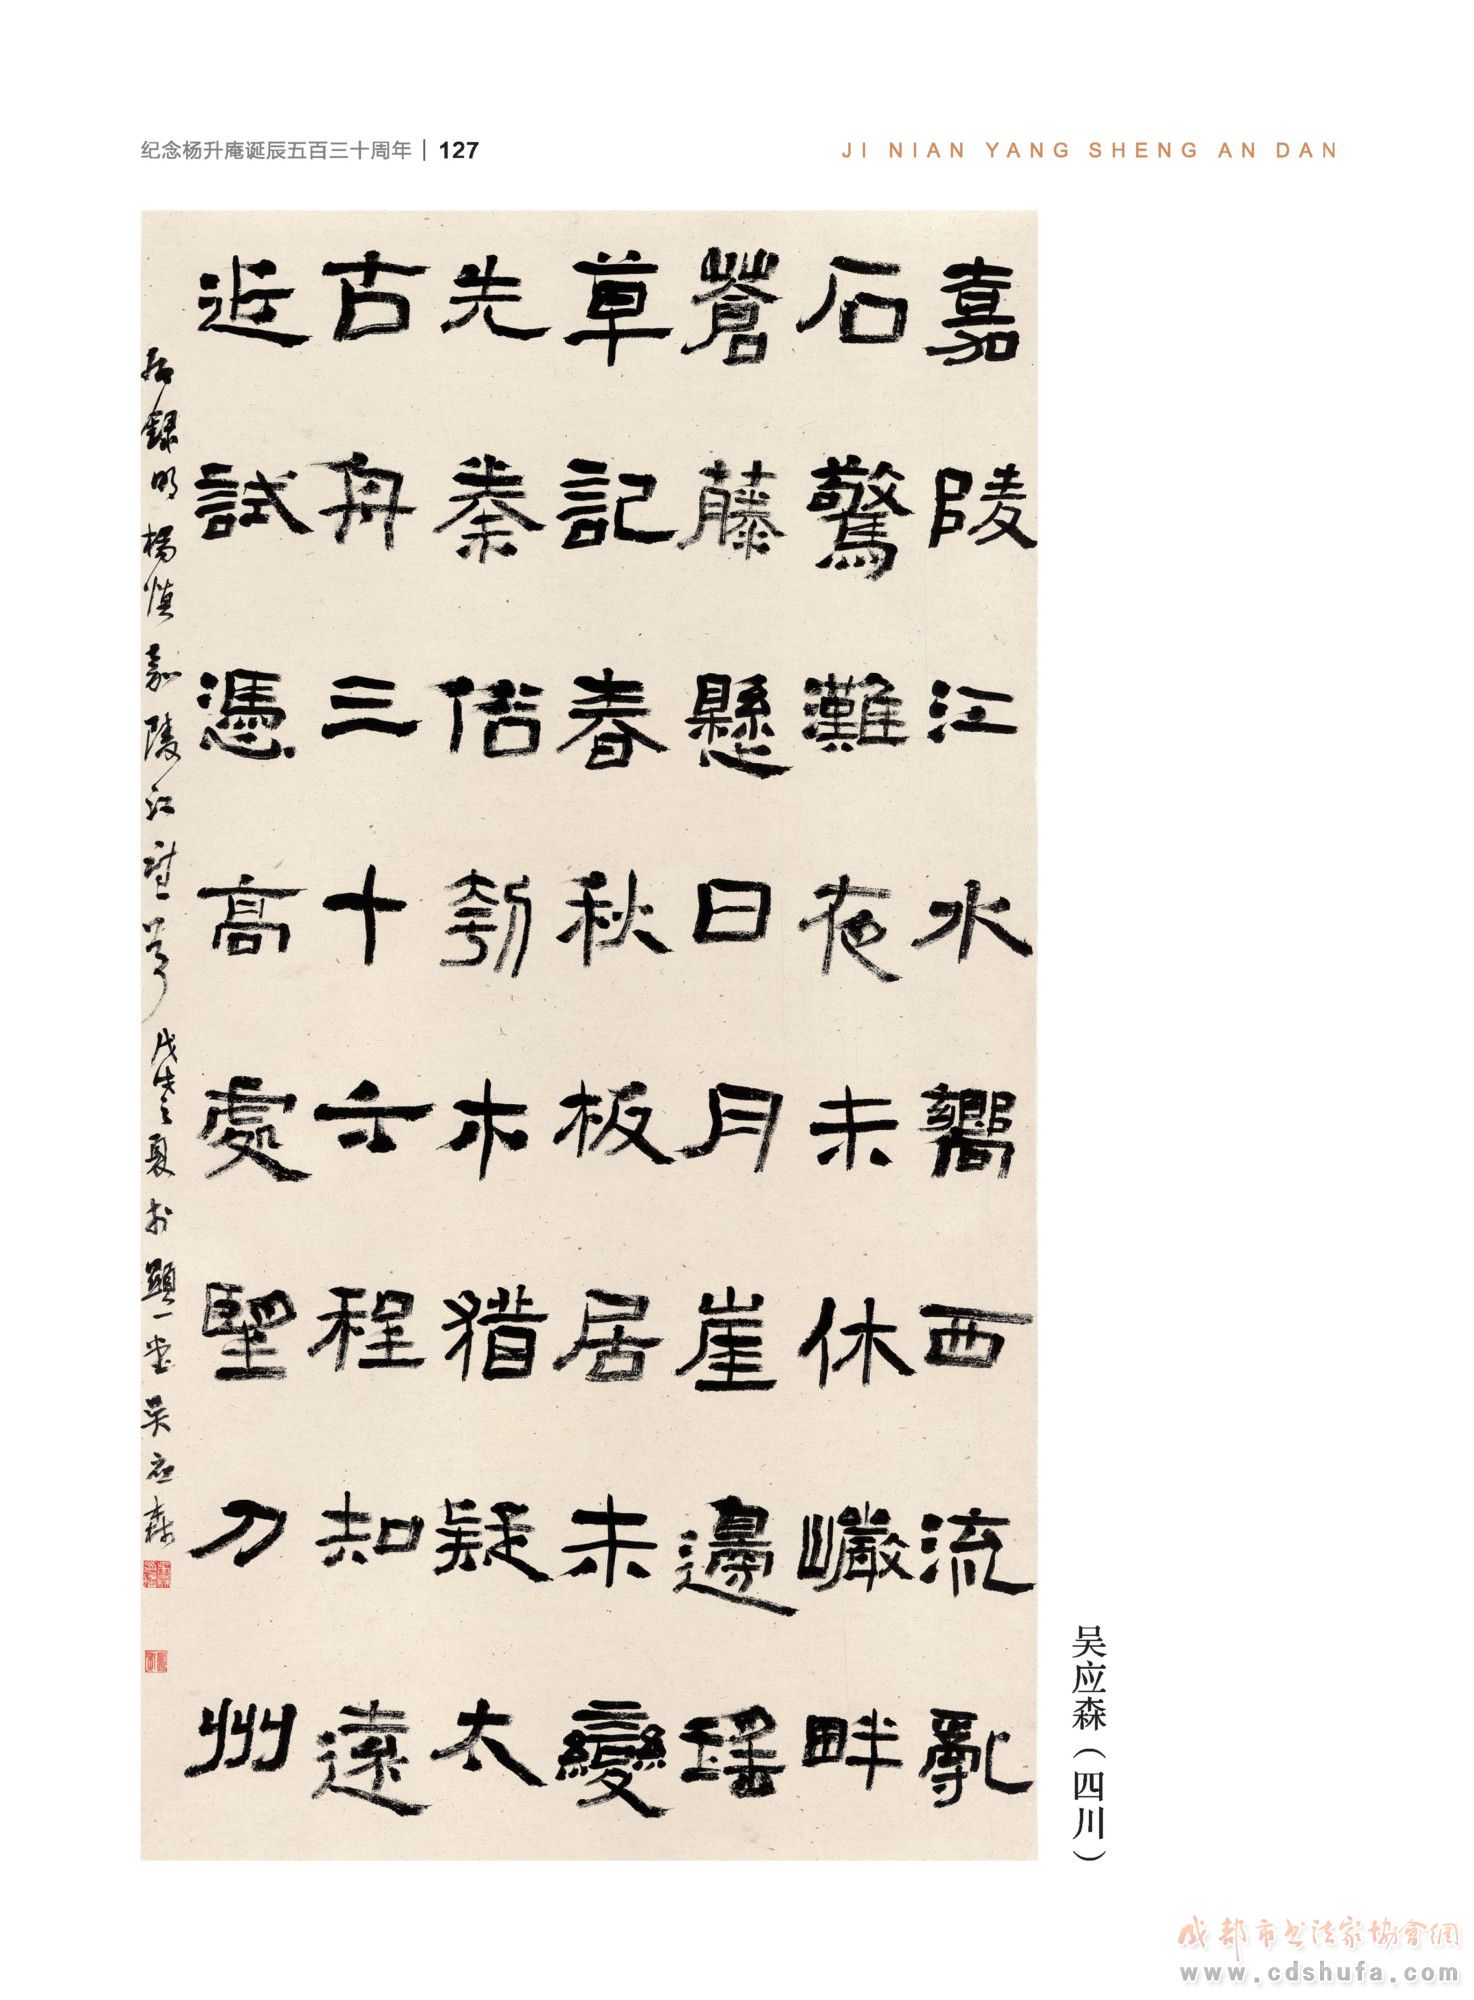 纪念杨升庵诞辰五百三十周年 | 127
JI NIAN YANG SHENG AN DAN
嘉陵江水嚮西流亂
石驚灘夜未休巖畔
蒼藤懸日月崖邊瑤
草記春秋板居未變
先秦俗刳木猶疑太
古舟三十六程知遠
近試憑高處望刀州
右錄明楊慎嘉陵江 戊戌之夏於顯堂吴应森
吴应森（四川）
成都市书法家协會網
www.cdshufa.com